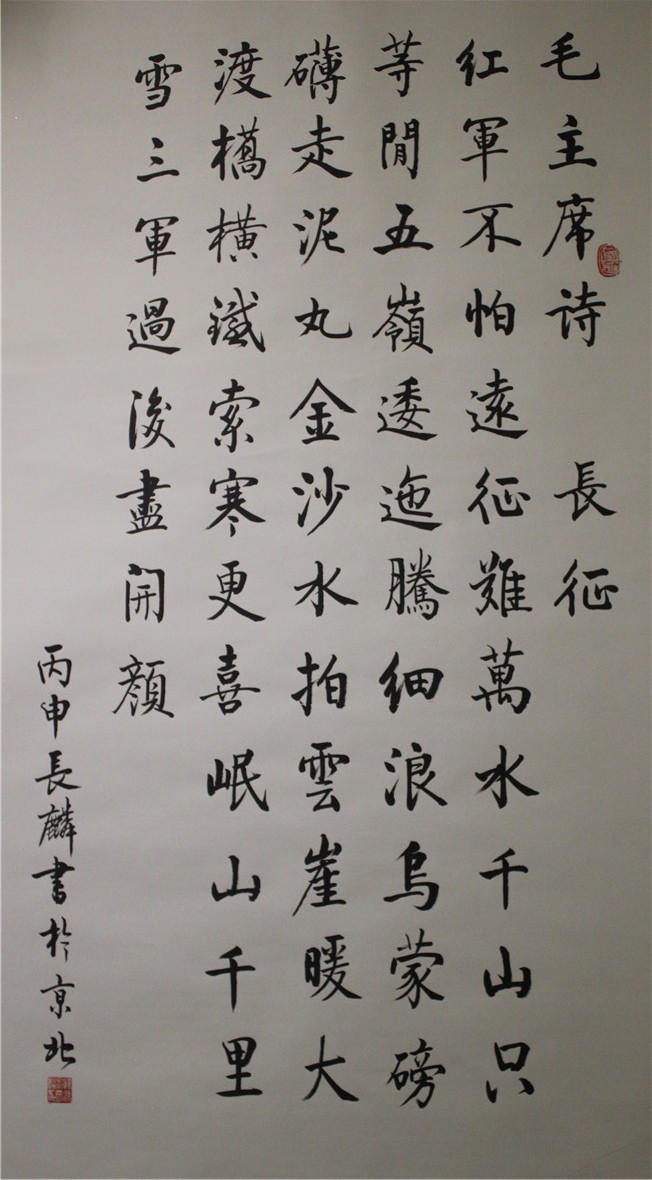 毛主席诗 長征
红軍不怕遠征難萬水千山只
等閒五嶺逶迤騰细浪烏蒙磅
礴走泥丸金沙水拍雲崖暖大
渡橋橫鐵索寒更喜岷山千里
雪三軍過後盡開顔
丙申長麟書於京北